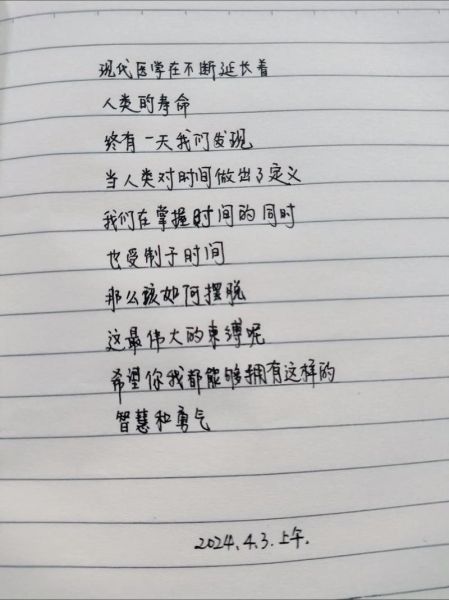 现代医学在不断延长着
人类的寿命
终有一天我们发现
当人类对时间做出了定义
我们在掌握时间的同时
也受制于时间
那么该如何摆脱
这最伟大的束缚呢
希望你我都能够拥有这样的
智慧和勇气
2024.4.3.上午.